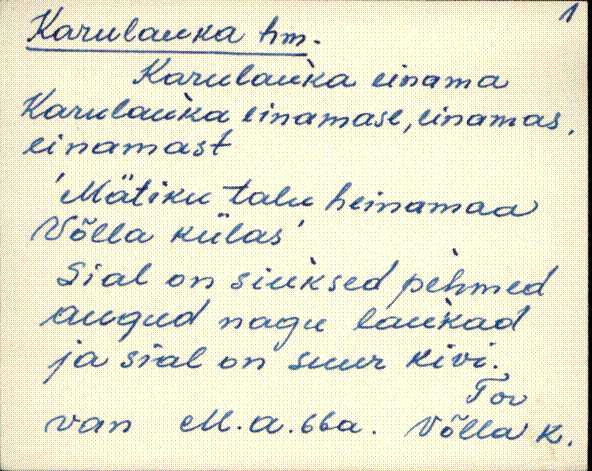 1
Karulauka hm.
Karulau̔ka einama
Karulau̔ka einamase, einamas,
einamast
'Mätiku talu heinamaa
Võlla külas'
Sial on siu̔ksed pe̔hmed
augud nagu lau̔kad
ja sial on suur kivi.
Tov
van M.a. 66a. Võlla k.